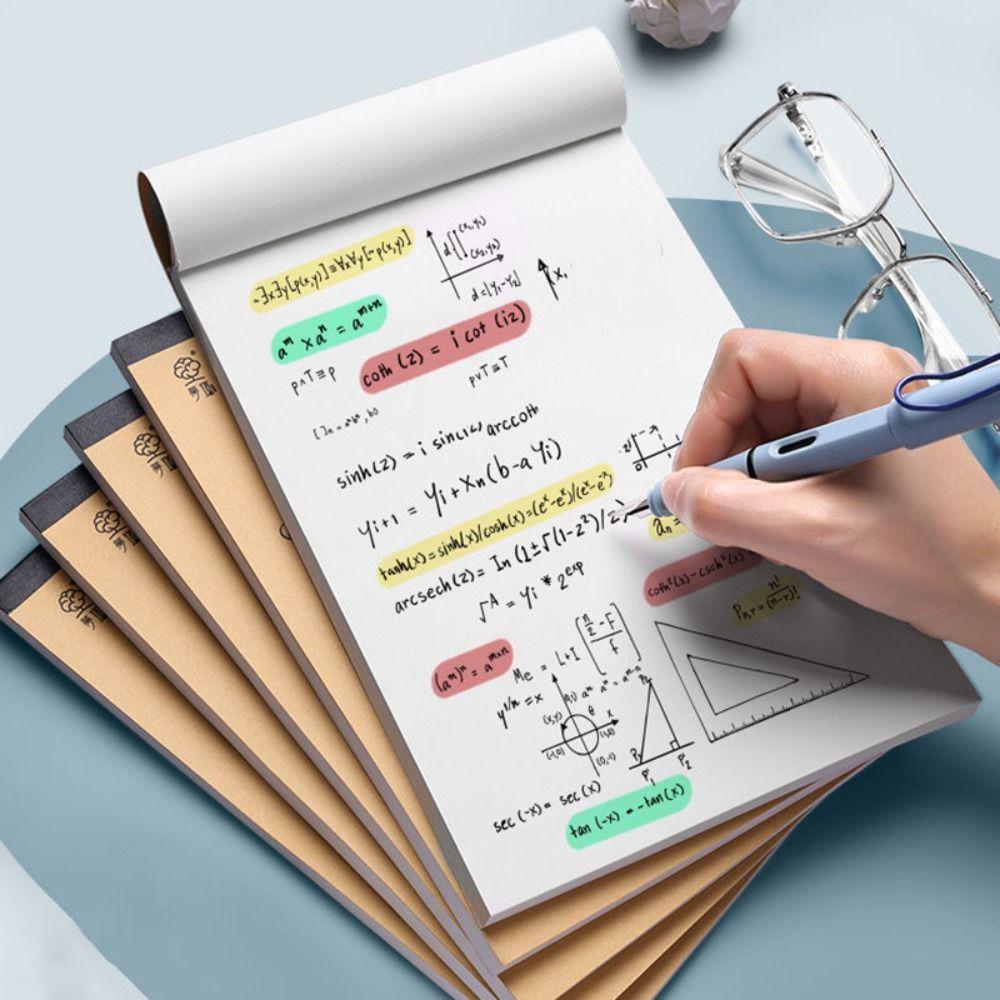 ¬∃x∃y[p(x,y)]≡∀x∀y[¬p(x,y)]
(x₁,y₁)
d
(x₂,y₂)
d=|y₁-y₂|
x₁
aᵐ × aⁿ = aᵐ⁺ⁿ
coth (z) = i cot (iz)
p∧T≡p
p∨T≡T
sinh(z) = i sin arccoth
yi+1 = yi + xn (b-a yi)
tanh(x)=sinh(x)/cosh(x)=(eˣ-eˣ)/(eˣ-eˣ)
arcsech(z)= In (1±√(1-z²)/z)
an=
√A = yi * 2ᵉˣᵖ
coth²(x) - csch²(x)
Pn,r= n!/(n-r)!
(aᵐ)ⁿ = aᵐˣⁿ
Me = L+I [n/2 - F / f]
y¹/ⁿ = x
(0,1) aᵐ aⁿ = aᵐ⁻ⁿ
(x,y) θ x
(-1,0) (1,0)
(0,-1)
P₂
P
P₁ P₂
sec (-x) = sec (x)
tan (-x) = -tan (x)